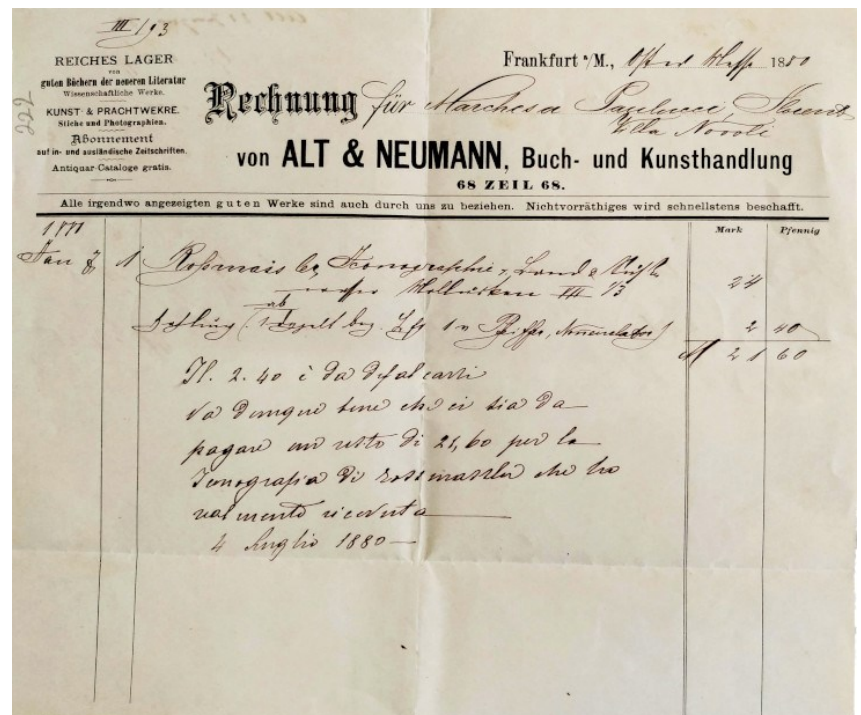 III 1/93
222
REICHES LAGER
von
guten Büchern der neueren Literatur
Wissenschaftliche Werke.
KUNST- & PRACHTWEKRE.
Stiche und Photographien.
Abonnement
auf in- und ausländische Zeitschriften.
Antiquar-Cataloge gratis.
Frankfurt a/M., Oster Messe 1880
Rechnung für Marchesa Paulucci,
Villa Novoli
von ALT & NEUMANN, Buch- und Kunsthandlung
68 ZEIL 68.
Alle irgendwo angezeigten guten Werke sind auch durch uns zu beziehen. Nichtvorräthiges wird schnellstens beschafft.
Mark Pfennig
Jan 1 Iconographie Land &
III 1/3 24
ab
1 v Pfeiffer, Nomenclator) 2 40
M 21 60
Il. 2.40 è da difalcarsi
Va dunque bene che ci sia da
pagare un resto di 21,60 per la
Iconografia di Rossmassler che ho
realmente ricevuta
4 Luglio 1880